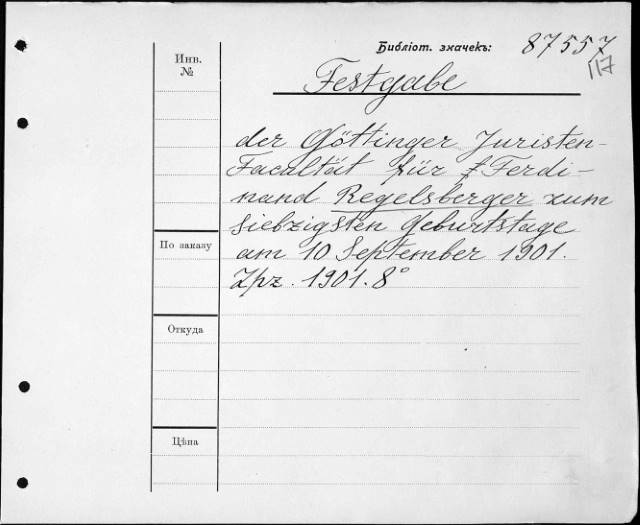 Библіот. значекъ: 87557
117
Инв.
№
Festgabe
der Göttinger Juristen-
Facultät für Ferdi-
nand Regelsberger zum
siebzigsten Geburtstage
am 10 September 1901.
Lpz. 1901. 8°
По заказу
Откуда
Цѣна